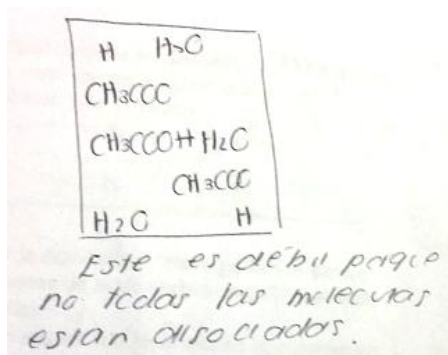 H H2O
CH3COO
CH3COOH H2O
CH3COO
H2O H
Este es débil porque
no todas las moleculas
estan disociadas.